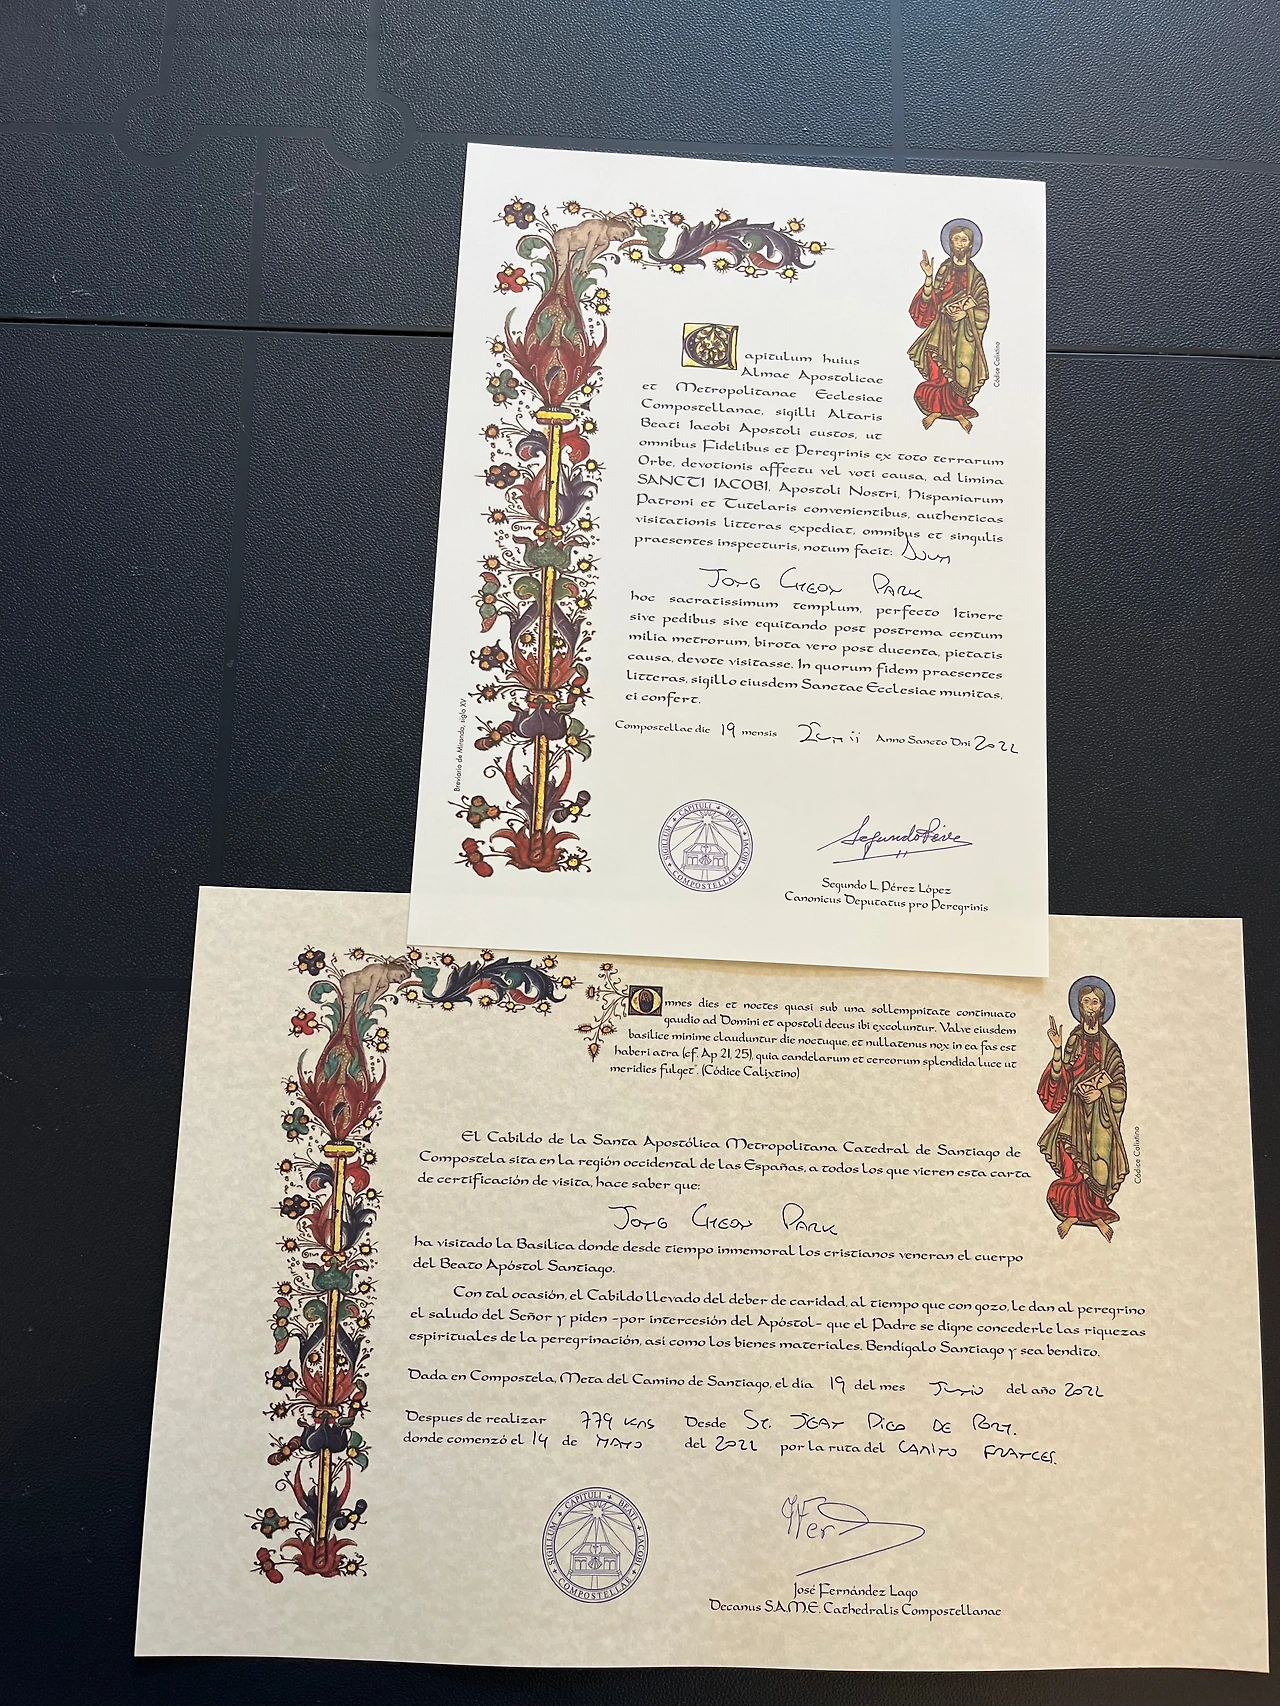 Capitulum huius
Almae Apostolicae
et Metropolitanae Ecclesiae
Compostellanae, sigilli Altaris
Beati Iacobi Apostoli custos, ut
omnibus Fidelibus et Peregrinis ex toto terrarum
Orbe, devotionis affectu vel voti causa, ad limina
SANCTI IACOBI, Apostoli Nostri, Hispaniarum
Patroni et Tutelaris convenientibus, authenticas
visitationis litteras expediat, omnibus et singulis
praesentes inspecturis, notum facit: Dnum
Jong Cheon Park
hoc sacratissimum templum, perfecto Itinere
sive pedibus sive equitando post postrema centum
milia metrorum, birota vero post ducenta, pietatis
causa, devote visitasse. In quorum fidem praesentes
litteras, sigillo eiusdem Sanctae Ecclesiae munitas,
ei confert.
Compostellae die 19 mensis Iunii Anno Sancto Dni 2022
Códice Calixtino
Breviario de Miranda, siglo XV
SIGILLUM + CAPITULI + BEATI + IACOBI + COMPOSTELLAE +
Segundo L. Pérez López
Canonicus Deputatus pro Peregrinis
Omnes dies et noctes quasi sub una sollempnitate continuato
gaudio ad Domini et apostoli decus ibi excoluntur. Valve eiusdem
basilice minime clauduntur die noctuque, et nullatenus nox in ea fas est
haberi atra (cf. Ap 21, 25), quia candelarum et cereorum splendida luce ut
meridies fulget". (Códice Calixtino)
Códice Calixtino
El Cabildo de la Santa Apostólica Metropolitana Catedral de Santiago de
Compostela sita en la región occidental de las Españas, a todos los que vieren esta carta
de certificación de visita, hace saber que:
Jong Cheon Park
ha visitado la Basílica donde desde tiempo inmemorial los cristianos veneran el cuerpo
del Beato Apóstol Santiago.
Con tal ocasión, el Cabildo llevado del deber de caridad, al tiempo que con gozo, le dan al peregrino
el saludo del Señor y piden -por intercesión del Apóstol- que el Padre se digne concederle las riquezas
espirituales de la peregrinación, así como los bienes materiales. Bendígalo Santiago y sea bendito.
Dada en Compostela, Meta del Camino de Santiago, el día 19 del mes Junio del año 2022
Despues de realizar 779 kms Desde St. Jean Pied de Port.
donde comenzó el 14 de Mayo del 2022 por la ruta del Camino Frances.
SIGILLUM + CAPITULI + BEATI + IACOBI + COMPOSTELLAE +
José Fernández Lago
Decanus S.A.M.E. Cathedralis Compostellanae